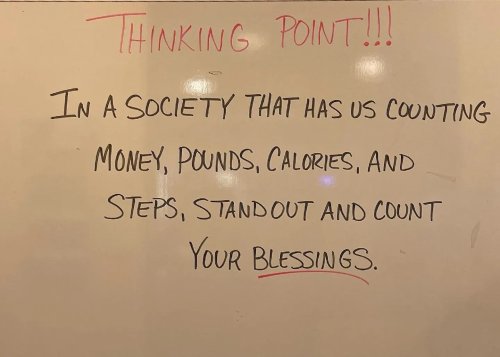 THINKING POINT!!!
IN A SOCIETY THAT HAS US COUNTING
MONEY, POUNDS, CALORIES, AND
STEPS, STAND OUT AND COUNT
YOUR BLESSINGS.